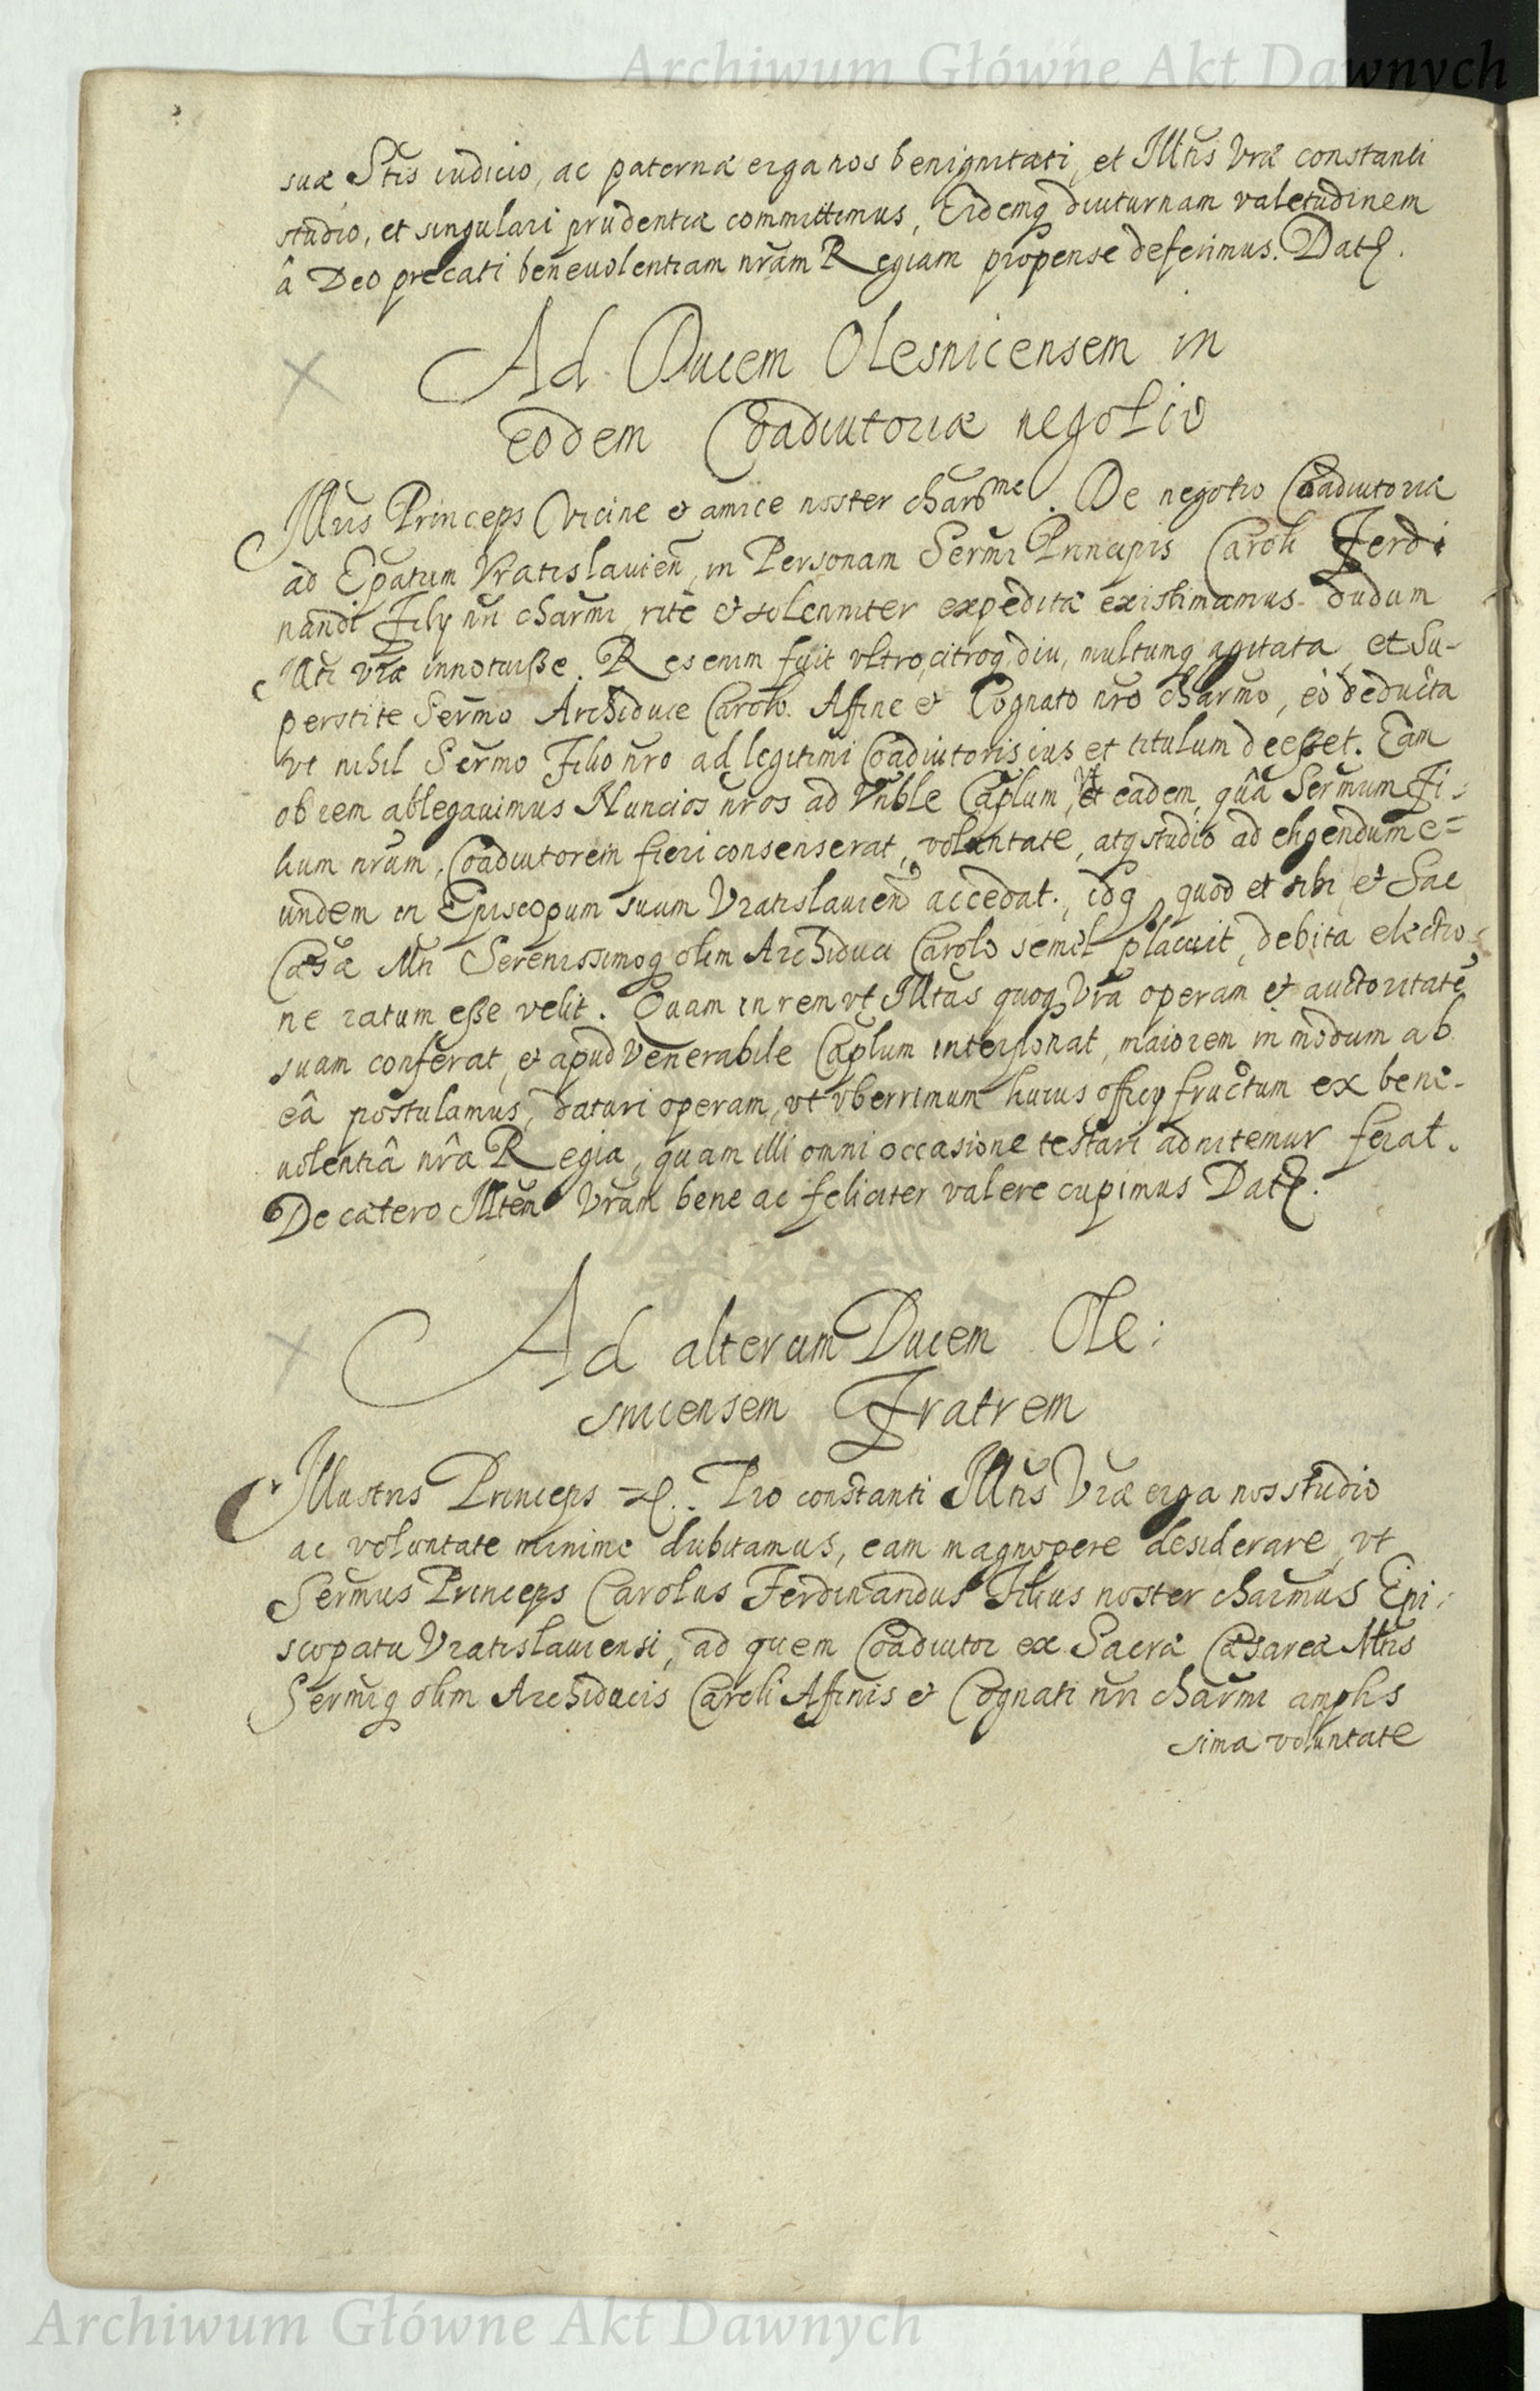 Archiwum Główne Akt Dawnych
suæ Stis iudicio, ac paternæ erga nos benignitati, et Illtis Vræ constanti
studio, et singulari prudentiæ committimus, Eidemq diuturnam valetudinem
â Deo precati beneuolentiam nram Regiam propense deferimus. Datȩ.
Ad Ducem Olesnicensem in
eodem Coadiutoriæ negotio
Illris Princeps Vicine et amice noster charme. De negotio Coadiutoriæ
ad Epatum Vratislauien, in Personam Sermi Principis Caroli Ferdi
nandi Filij nri charmi rite et solenniter expeditæ existimamus dudum
Illti vræ innotuisse. Res enim fuit vltro, citroq diu, multumq agitata, et Su-
perstite Sermo Archiduce Carolo Affine et Cognato nro charmo, eò deducta
vt nihil Sermo Filio nro ad legitimi Coadiutoris ius et titulum deesset. Eam
ob rem ablegauimus Nuncios nros ad Vnble Caplum, vt eadem, quâ Sermum Fi:
lium nrum, Coadiutorem fieri consenserat, voluntate, atq studio ad eligendum e=
undem in Episcopum suum Vratislauien accedat, idq, quod et sibi, et Sac
Cæsæ Mti Serenissimoq olim Archiduci Carolo semel placuit, debita electio
ne ratum esse velit. Quam in rem vt Illtas quoq Vra operam et auctoritate
suam conferat, et apud Venerabile Caplum interponat, maiorem in modum ab
eâ postulamus, daturi operam, vt vberrimum huius officij fructum ex bene-
uolentiâ nrâ Regia, quam illi omni occasione testari adnitemur ferat.
De cætero Illtem Vram bene ac feliciter valere cupimus Datȩ.
Ad alterum Ducem Ole:
snicensem Fratrem
Illustris Princeps etc. Pro constanti Illtis Vræ erga nos studio
ac voluntate minime dubitamus, eam magnopere desiderare, vt
Sermus Princeps Carolus Ferdinandus Filius noster charmus Epi:
scopatu Vratislauiensi, ad quem Coadiutor ex Sacræ Cæsareæ Mtis
Sermiq olim Archiducis Caroli Affinis et Cognati nri charmi amplis
sima voluntate
Archiwum Główne Akt Dawnych